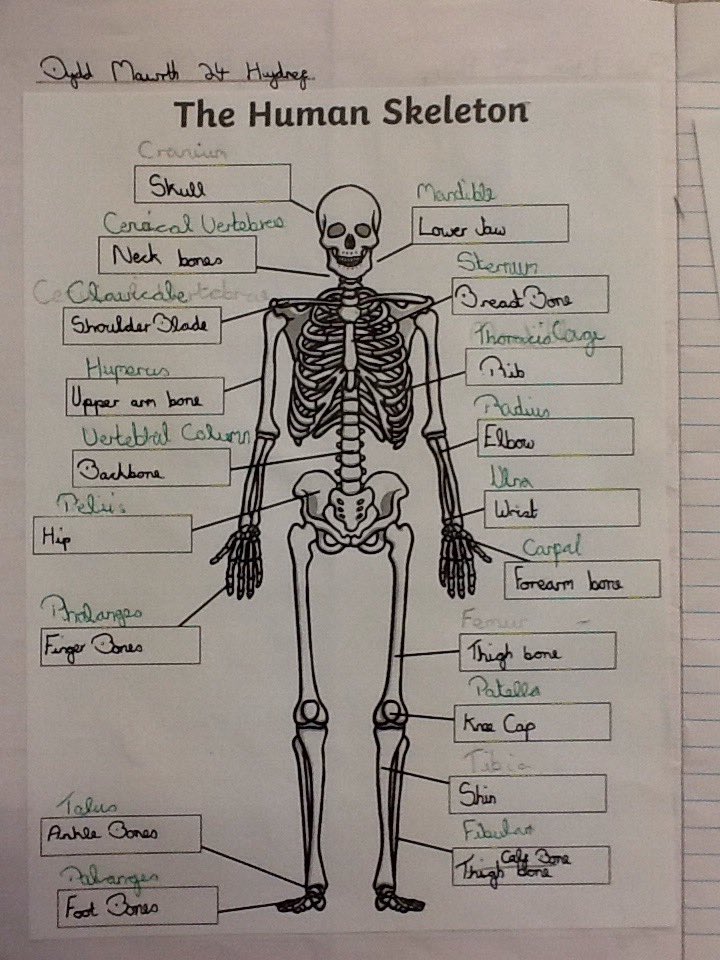 Dydd Mawrth 24 Hydref
The Human Skeleton
Cranium
Skull
Mandible
Lower Jaw
Cervical Vertebrae
Neck bones
Sternum
Breast Bone
Clavicale
Shoulder Blade
Thoracis Cage
Rib
Humerus
Upper arm bone
Radius
Elbow
Vertebral Column
Backbone
Ulna
Wrist
Pelvis
Hip
Carpal
Forearm bone
Phalanges
Finger Bones
Femur
Thigh bone
Patella
Knee Cap
Tibia
Shin
Talus
Ankle Bones
Fibular
Calf Bone
Thigh Bone
Palanges
Foot Bones